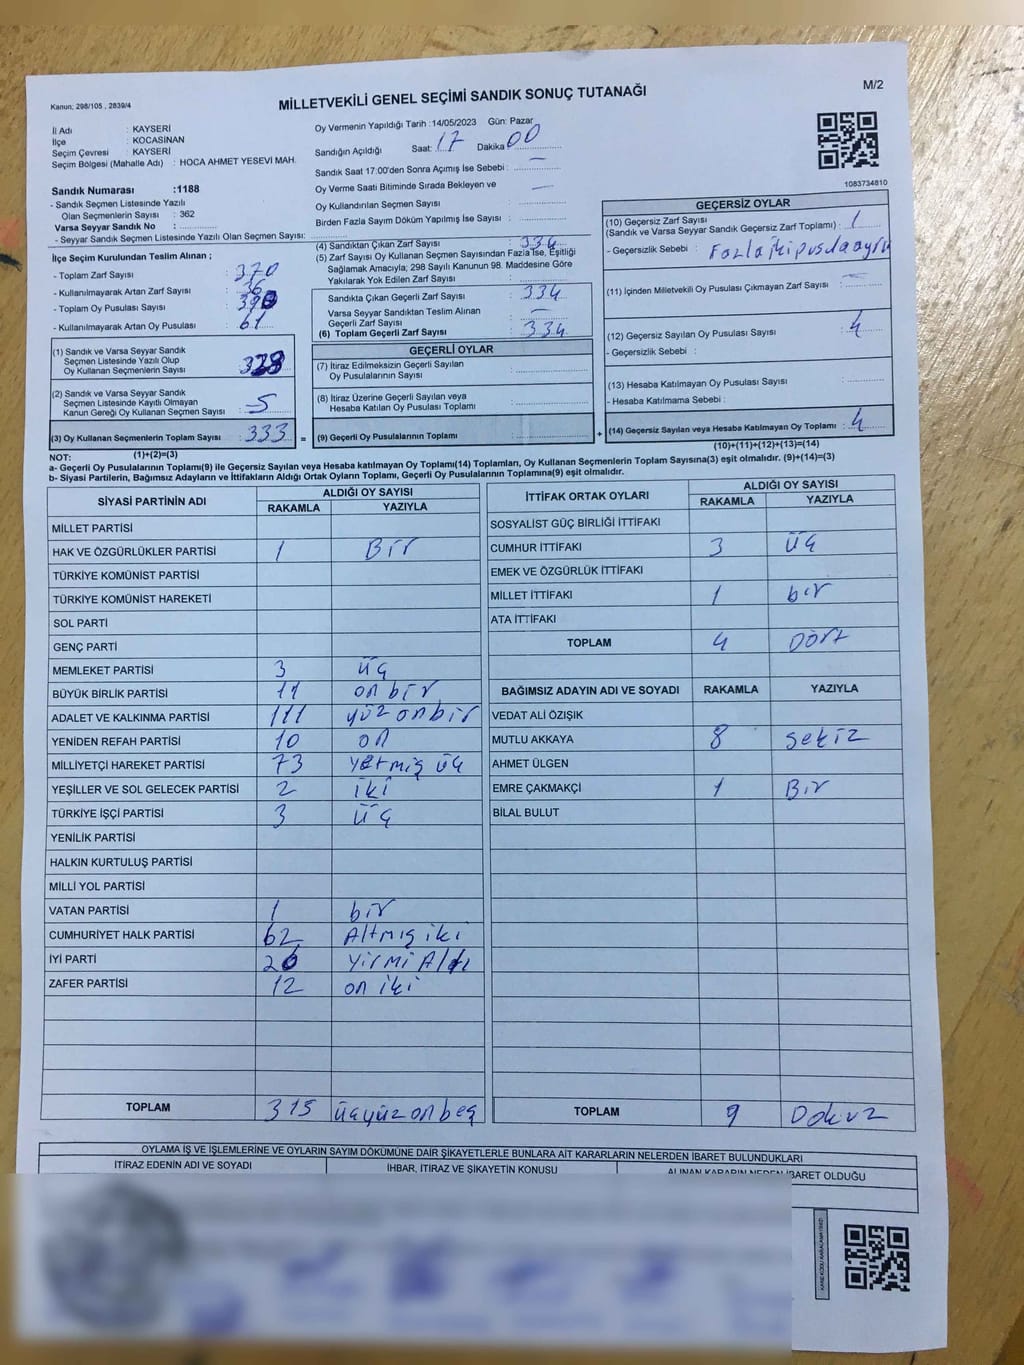 Kanun; 298/105 , 2839/4
MİLLETVEKİLİ GENEL SEÇİMİ SANDIK SONUÇ TUTANAĞI
M/2
İl Adı : KAYSERİ
İlçe : KOCASİNAN
Seçim Çevresi : KAYSERİ
Seçim Bölgesi (Mahalle Adı) : HOCA AHMET YESEVİ MAH.
Sandık Numarası :1188
- Sandık Seçmen Listesinde Yazılı
Olan Seçmenlerin Sayısı : 362
Varsa Seyyar Sandık No :
- Seyyar Sandık Seçmen Listesinde Yazılı Olan Seçmen Sayısı:
Oy Vermenin Yapıldığı Tarih :14/05/2023 Gün: Pazar
Sandığın Açıldığı Saat: 17 Dakika 00
Sandık Saat 17:00'den Sonra Açımış İse Sebebi : —
Oy Verme Saati Bitiminde Sırada Bekleyen ve —
Oy Kullandırılan Seçmen Sayısı :
Birden Fazla Sayım Döküm Yapılmış İse Sayısı :
1083734810
İlçe Seçim Kurulundan Teslim Alınan ;
- Toplam Zarf Sayısı : 370
- Kullanılmayarak Artan Zarf Sayısı : 36
- Toplam Oy Pusulası Sayısı :
- Kullanılmayarak Artan Oy Pusulası : 61
(1) Sandık ve Varsa Seyyar Sandık
Seçmen Listesinde Yazılı Olup
Oy Kullanan Seçmenlerin Sayısı :
(2) Sandık ve Varsa Seyyar Sandık
Seçmen Listesinde Kayıtlı Olmayan
Kanun Gereği Oy Kullanan Seçmen Sayısı : 5
(3) Oy Kullanan Seçmenlerin Toplam Sayısı : 333 =
(1)+(2)=(3)
(4) Sandıktan Çıkan Zarf Sayısı : 334
(5) Zarf Sayısı Oy Kullanan Seçmen Sayısından Fazla İse, Eşitliği
Sağlamak Amacıyla; 298 Sayılı Kanunun 98. Maddesine Göre
Yakılarak Yok Edilen Zarf Sayısı :
Sandıkta Çıkan Geçerli Zarf Sayısı : 334
Varsa Seyyar Sandıktan Teslim Alınan
Geçerli Zarf Sayısı : —
(6) Toplam Geçerli Zarf Sayısı : 334
GEÇERLİ OYLAR
(7) İtiraz Edilmeksizin Geçerli Sayılan
Oy Pusulalarının Sayısı :
(8) İtiraz Üzerine Geçerli Sayılan veya
Hesaba Katılan Oy Pusulası Toplamı :
(9) Geçerli Oy Pusulalarının Toplamı : +
GEÇERSİZ OYLAR
(10) Geçersiz Zarf Sayısı
(Sandık ve Varsa Seyyar Sandık Geçersiz Zarf Toplamı) : 1
- Geçersizlik Sebebi : Fazla iki pusula ayrı
(11) İçinden Milletvekili Oy Pusulası Çıkmayan Zarf Sayısı : —
(12) Geçersiz Sayılan Oy Pusulası Sayısı : 4
- Geçersizlik Sebebi :
(13) Hesaba Katılmayan Oy Pusulası Sayısı :
- Hesaba Katılmama Sebebi :
(14) Geçersiz Sayılan veya Hesaba Katılmayan Oy Toplamı : 4
(10)+(11)+(12)+(13)=(14)
NOT:
a- Geçerli Oy Pusulalarının Toplamı(9) ile Geçersiz Sayılan veya Hesaba katılmayan Oy Toplamı(14) Toplamları, Oy Kullanan Seçmenlerin Toplam Sayısına(3) eşit olmalıdır. (9)+(14)=(3)
b- Siyasi Partilerin, Bağımsız Adayların ve İttifakların Aldığı Ortak Oyların Toplamı, Geçerli Oy Pusulalarının Toplamına(9) eşit olmalıdır.
SİYASİ PARTİNİN ADI ALDIĞI OY SAYISI
RAKAMLA YAZIYLA
MİLLET PARTİSİ
HAK VE ÖZGÜRLÜKLER PARTİSİ 1 Bir
TÜRKİYE KOMÜNİST PARTİSİ
TÜRKİYE KOMÜNİST HAREKETİ
SOL PARTİ
GENÇ PARTİ
MEMLEKET PARTİSİ 3 üç
BÜYÜK BİRLİK PARTİSİ 11 on bir
ADALET VE KALKINMA PARTİSİ 111 yüz onbir
YENİDEN REFAH PARTİSİ 10 on
MİLLİYETÇİ HAREKET PARTİSİ 73 yetmiş üç
YEŞİLLER VE SOL GELECEK PARTİSİ 2 iki
TÜRKİYE İŞÇİ PARTİSİ 3 üç
YENİLİK PARTİSİ
HALKIN KURTULUŞ PARTİSİ
MİLLİ YOL PARTİSİ
VATAN PARTİSİ 1 bir
CUMHURİYET HALK PARTİSİ 62 Altmış iki
İYİ PARTİ 26 Yirmi Altı
ZAFER PARTİSİ 12 on iki
TOPLAM 315 üçyüz on beş
İTTİFAK ORTAK OYLARI ALDIĞI OY SAYISI
RAKAMLA YAZIYLA
SOSYALİST GÜÇ BİRLİĞİ İTTİFAKI
CUMHUR İTTİFAKI 3 üç
EMEK VE ÖZGÜRLÜK İTTİFAKI
MİLLET İTTİFAKI 1 bir
ATA İTTİFAKI
TOPLAM 4 Dört
BAĞIMSIZ ADAYIN ADI VE SOYADI RAKAMLA YAZIYLA
VEDAT ALİ ÖZIŞIK
MUTLU AKKAYA 8 sekiz
AHMET ÜLGEN
EMRE ÇAKMAKÇİ 1 Bir
BİLAL BULUT
TOPLAM 9 Dokuz
OYLAMA İŞ VE İŞLEMLERİNE VE OYLARIN SAYIM DÖKÜMÜNE DAİR ŞİKAYETLERLE BUNLARA AİT KARARLARIN NELERDEN İBARET BULUNDUKLARI
İTİRAZ EDENİN ADI VE SOYADI İHBAR, İTİRAZ VE ŞİKAYETİN KONUSU ALINAN KARARIN NEDEN İBARET OLDUĞU